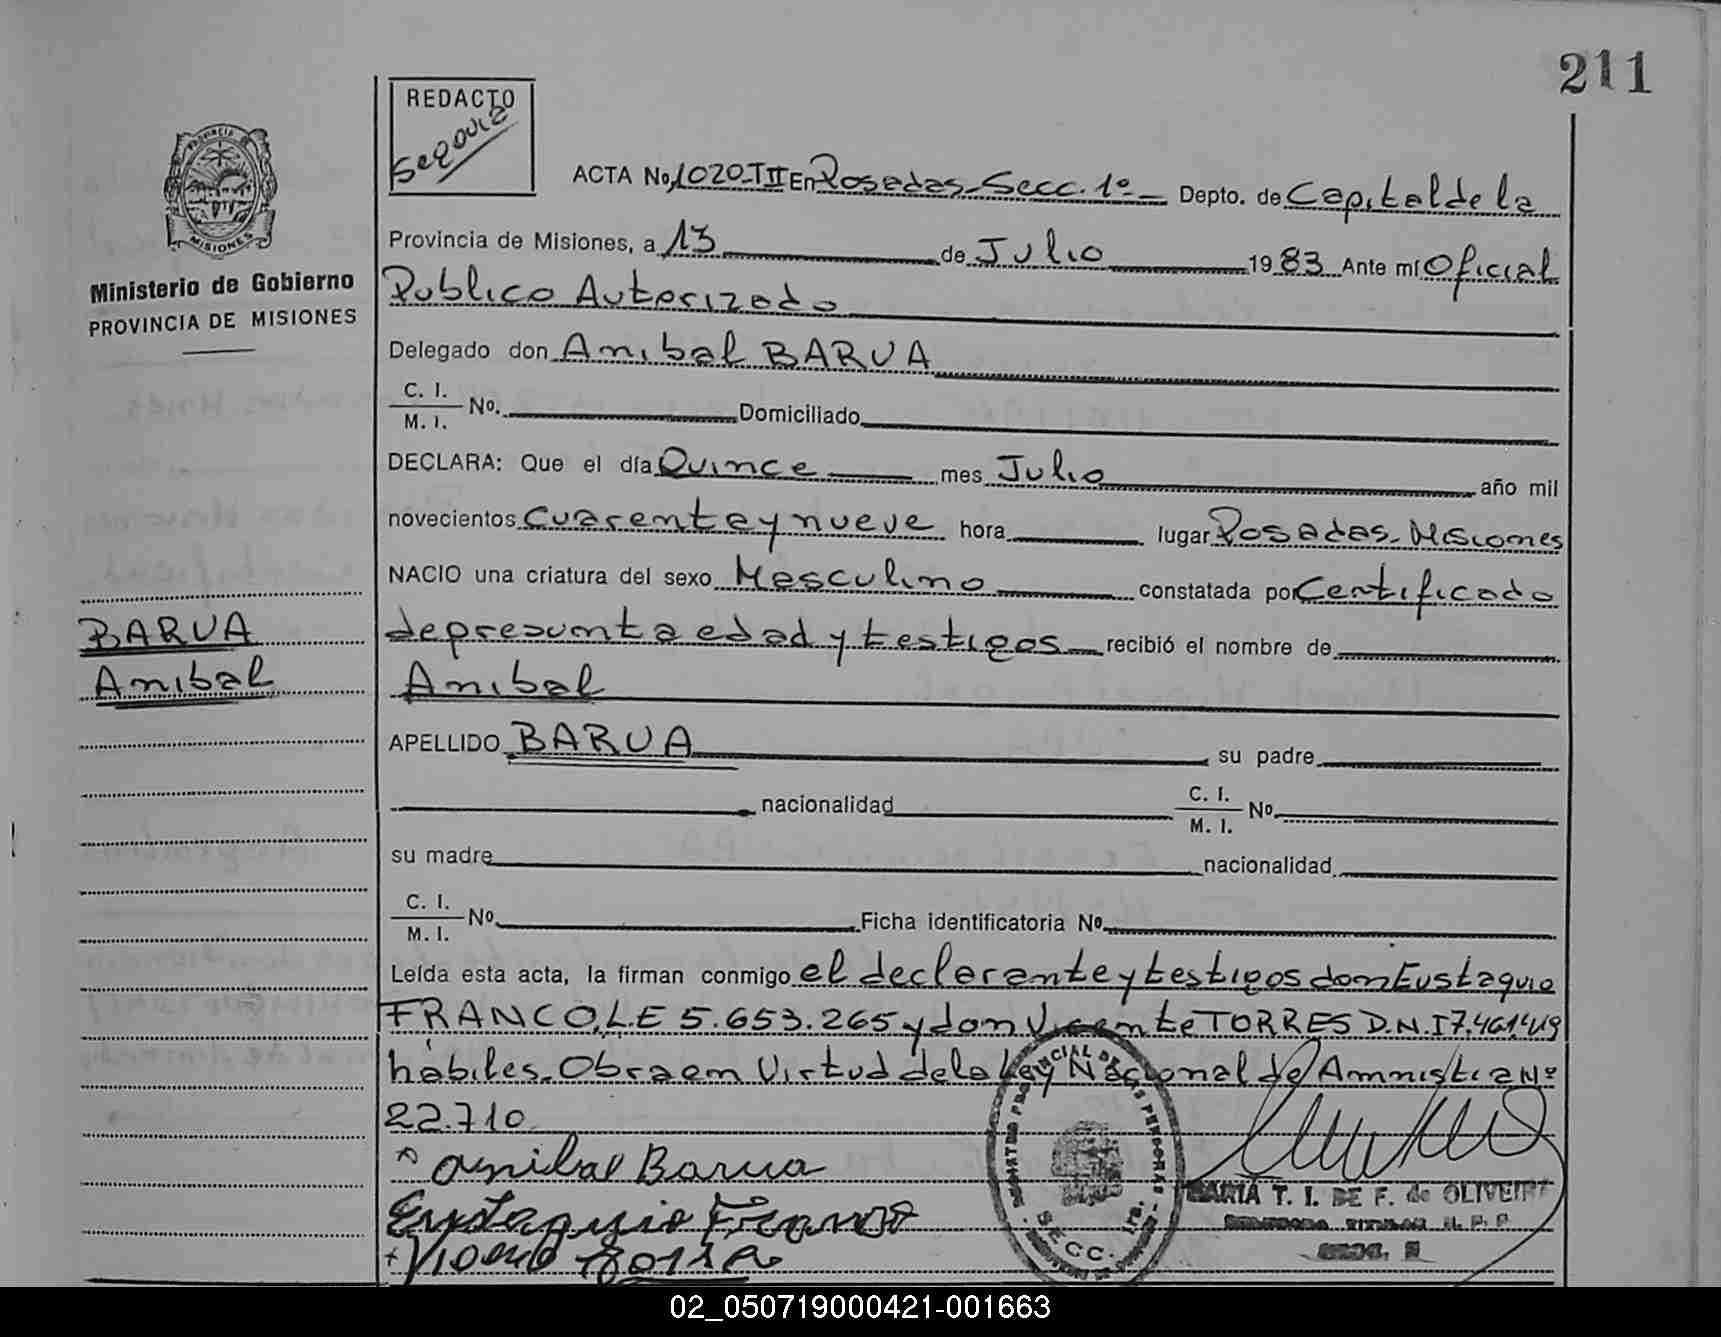 211
REDACTO
Segovia
PROVINCIA DE
MISIONES
Ministerio de Gobierno
PROVINCIA DE MISIONES
ACTA No. 1020-TII En Posadas-Secc. 1º Depto. de Capital de la
Provincia de Misiones, a 13 de Julio 1983 Ante mí Oficial
Publico Autorizado
Delegado don Anibal BARUA
C. I.
M. I. No. Domiciliado
DECLARA: Que el día Quince mes Julio año mil
novecientos cuarenta y nueve hora lugar Posadas-Misiones
NACIO una criatura del sexo Masculino constatada por Certificado
de presunta edad y testigos recibió el nombre de
Anibal
BARUA
Anibal
APELLIDO BARUA su padre
nacionalidad C. I.
M. I. No.
su madre nacionalidad
C. I.
M. I. No. Ficha identificatoria No.
Leída esta acta, la firman conmigo el declarante y testigos don Eustaquio
FRANCO, L.E 5.653.265 y don Vicente TORRES D.N.I 7.461.419
hábiles. Obra en Virtud de la Ley Nacional de Amnistia Nº
22.710
Anibal Barua
Eustaquio Franco
MARIA T. I. DE F. de OLIVEIRA
SECC. 1ra.
02_050719000421-001663